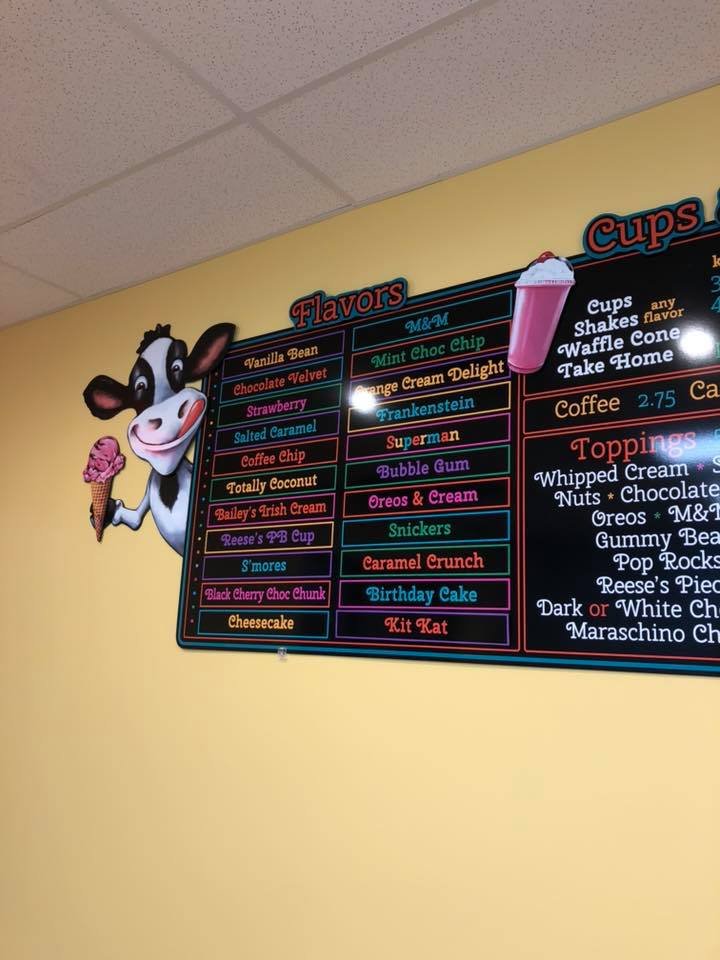 Flavors
Vanilla Bean
Chocolate Velvet
Strawberry
Salted Caramel
Coffee Chip
Totally Coconut
Bailey's Irish Cream
Reese's PB Cup
S'mores
Black Cherry Choc Chunk
Cheesecake
M&M
Mint Choc Chip
Orange Cream Delight
Frankenstein
Superman
Bubble Gum
Oreos & Cream
Snickers
Caramel Crunch
Birthday Cake
Kit Kat
Cups
Cups
Shakes any flavor
Waffle Cone
Take Home
Coffee 2.75 Ca
Toppings
Whipped Cream *
Nuts * Chocolate
Oreos * M&
Gummy Bea
Pop Rocks
Reese's Piec
Dark or White Ch
Maraschino Ch